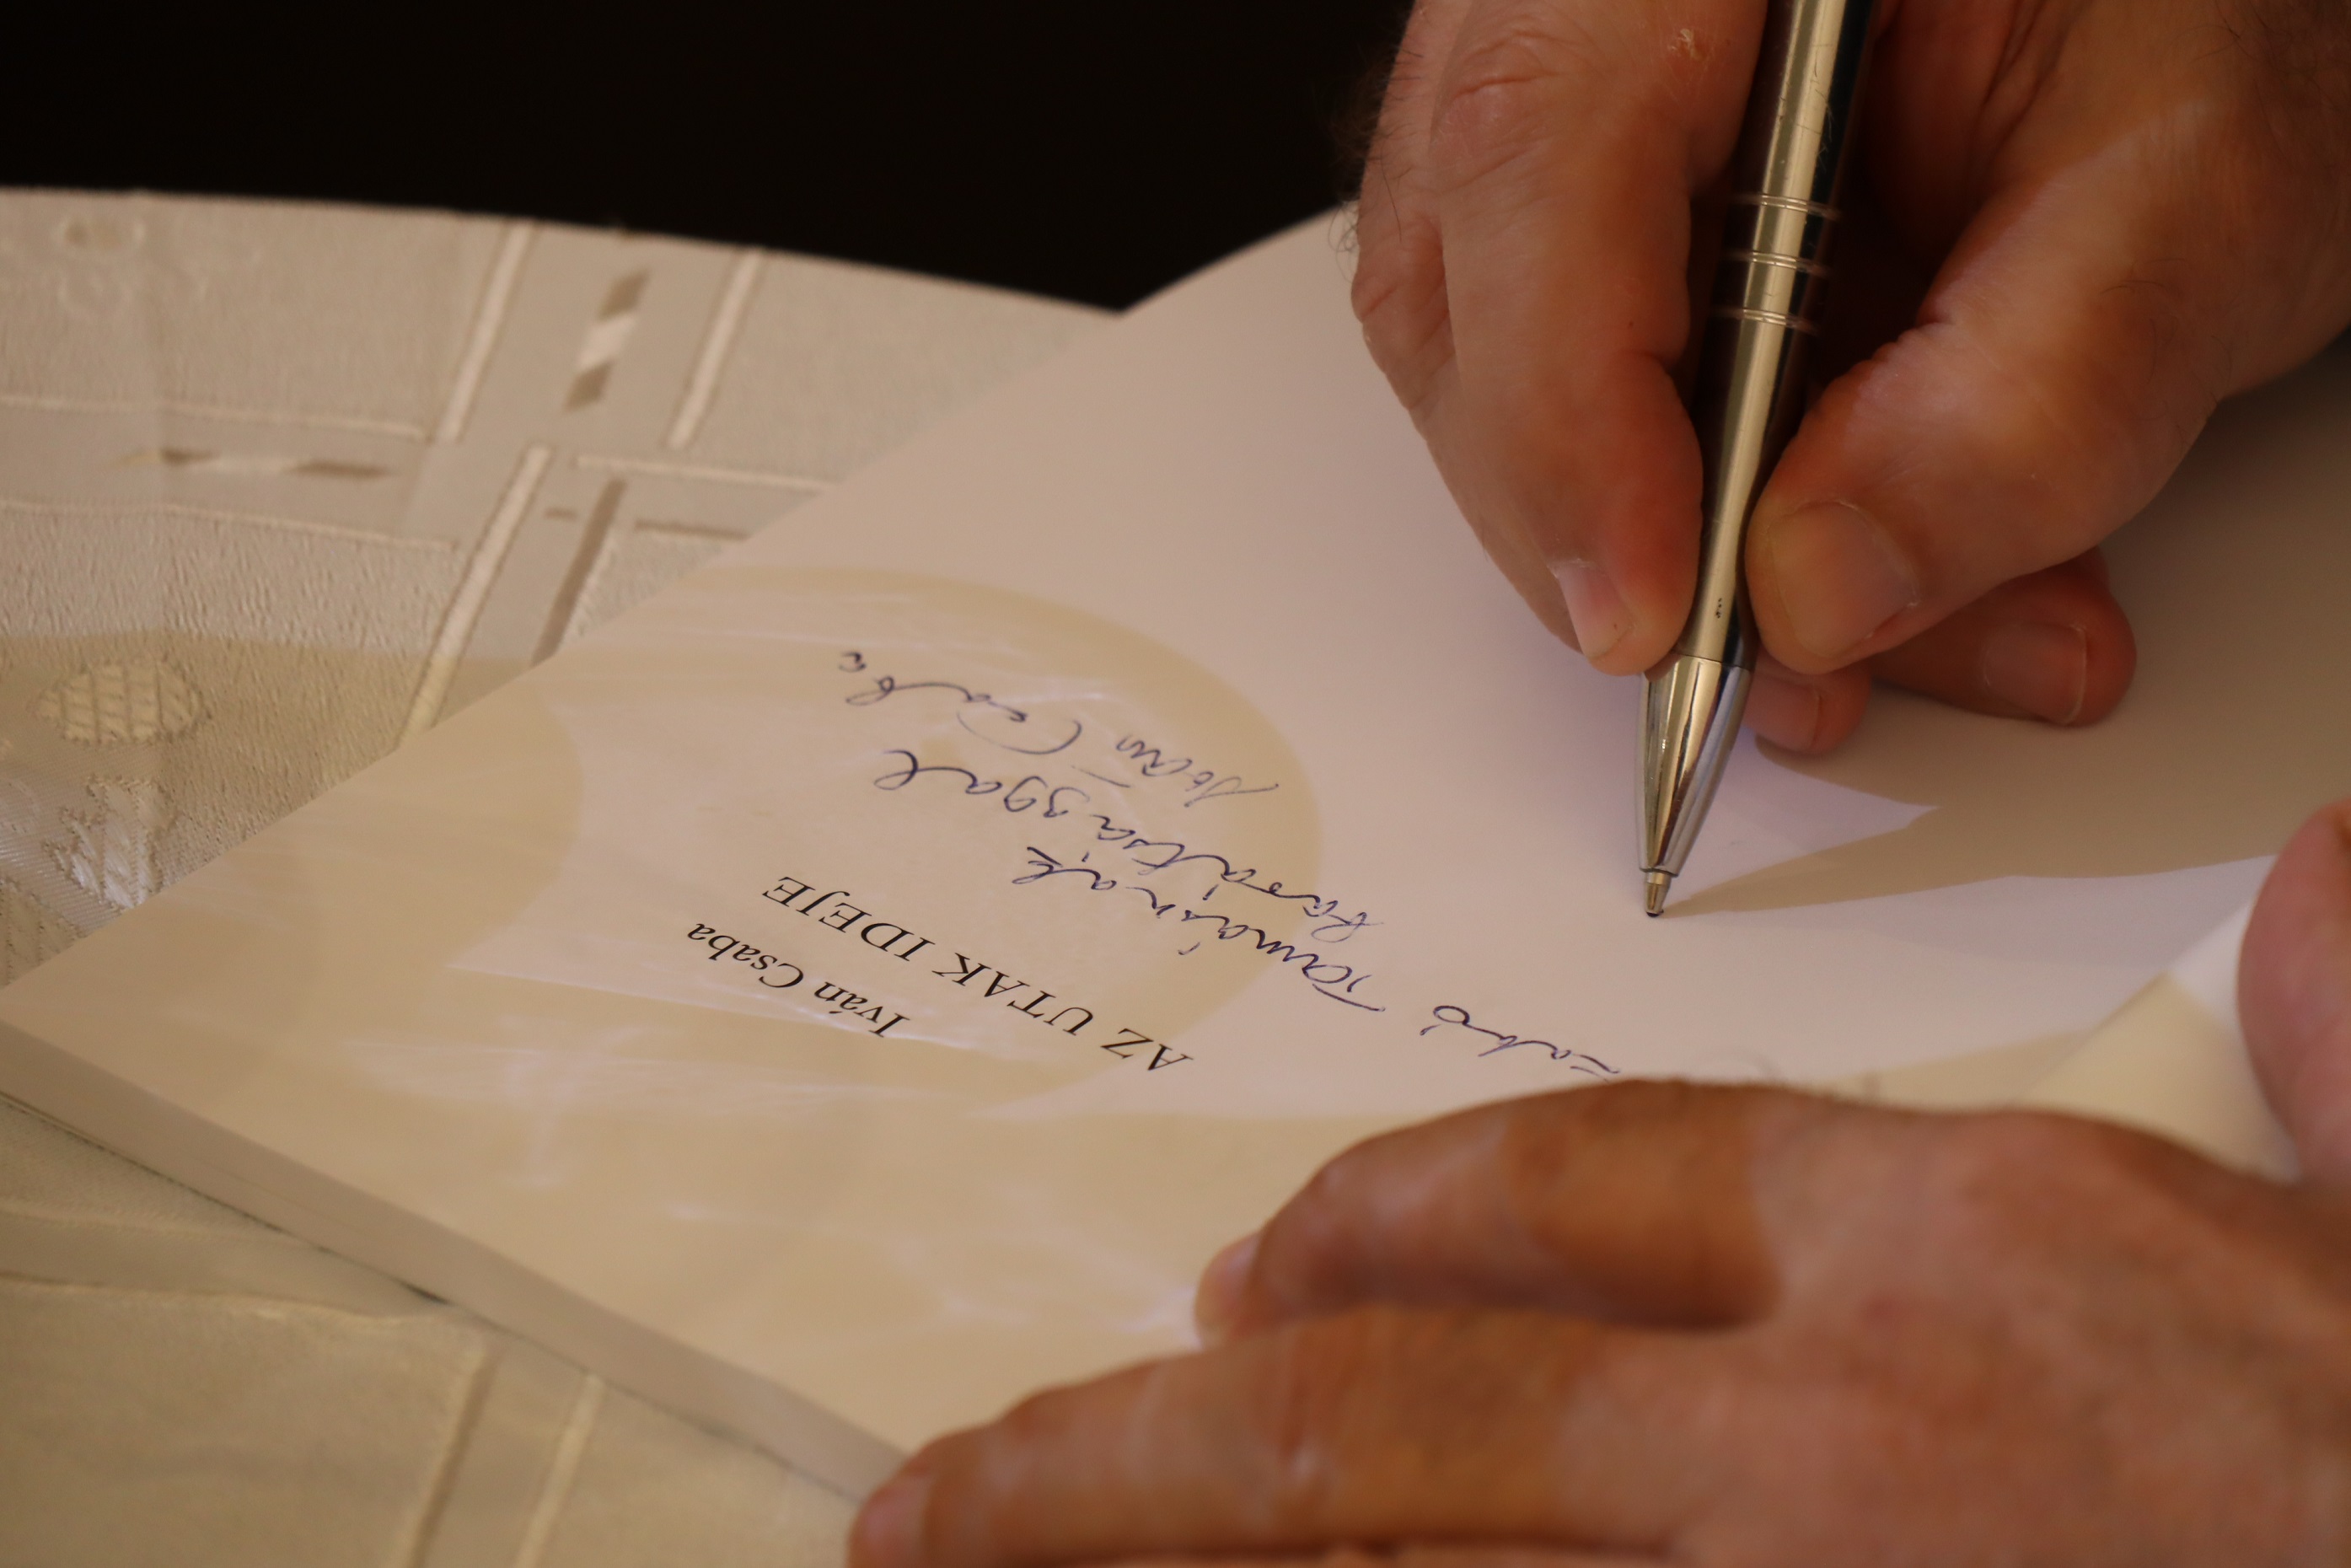 Iván Csaba
AZ UTAK IDEJE
Szabó Tamásnak
barátsággal
Iván Csaba